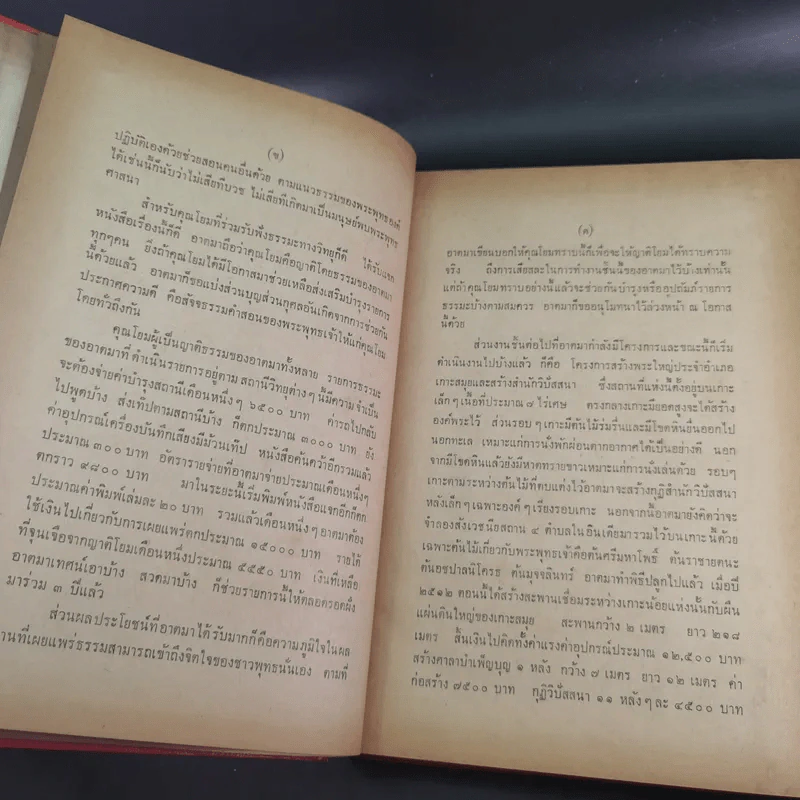 (ข)
ปฏิบัติเองด้วยช่วยสอนคนอื่นด้วย ตามแนวธรรมของพระพุทธองค์
ได้เช่นนี้ก็นับว่าไม่เสียทีบวช ไม่เสียที่เกิดมาเป็นมนุษย์พบพระพุทธ
ศาสนา
สำหรับคุณโยมที่ร่วมรับฟังธรรมะทางวิทยุก็ดี ได้รับแจก
หนังสือเรื่องนี้ก็ดี อาตมาถือว่าคุณโยมคือญาติโดยธรรมของอาตมา
ทุกๆคน ยิ่งถ้าคุณโยมได้มีโอกาสมาช่วยเหลือส่งเสริมบำรุงรายการ
นี้ด้วยแล้ว อาตมาก็ขอแบ่งส่วนบุญส่วนกุศลอันเกิดจากการช่วยกัน
ประกาศความดี คือสัจจธรรมคำสอนของพระพุทธเจ้าให้แก่คุณโยม
โดยทั่วถึงกัน
คุณโยมผู้เป็นญาติธรรมของอาตมาทั้งหลาย รายการธรรมะ
ของอาตมาที่ดำเนินรายการอยู่ตามสถานีวิทยุต่างๆนี้มีความจำเป็น
จะต้องจ่ายค่าบำรุงสถานีเดือนหนึ่งๆ ๖๕๐๐ บาท ค่ารถไปกลับ
ไปพูดบ้าง ส่งเทปตามสถานีบ้าง ก็ตกประมาณ ๓๐๐๐ บาท ยัง
ค่าอุปกรณ์เครื่องบันทึกเสียงมีม้วนเทป หนังสือค้นคว้าอีกรวมแล้ว
ประมาณ ๓๐๐ บาท อัตรารายจ่ายที่อาตมาจ่ายประมาณเดือนหนึ่งๆ
ตกราว ๙๘๐๐ บาท มาในระยะนี้เริ่มพิมพ์หนังสือแจกอีกก็ตก
ประมาณค่าพิมพ์เล่มละ ๒๐ บาท รวมแล้วเดือนหนึ่งๆอาตมาต้อง
ใช้เงินไปเกี่ยวกับการเผยแพร่ตกประมาณ ๑๕๐๐๐ บาท รายได้
ที่จุนเจือจากญาติโยมเดือนหนึ่งประมาณ ๔๕๕๐ บาท เงินที่เหลือ
อาตมาเทศน์เอาบ้าง สวดมาบ้าง ก็ช่วยรายการนี้ให้ตลอดรอดฝั่ง
มารวม ๓ ปีแล้ว
ส่วนผลประโยชน์ที่อาตมาได้รับมากก็คือความภูมิใจในผล
งานที่เผยแพร่ธรรมสามารถเข้าถึงจิตใจของชาวพุทธนั่นเอง ตามที่
(ค)
อาตมาเขียนบอกให้คุณโยมทราบนี้ก็เพื่อจะให้ญาติโยมได้ทราบความ
จริง ถึงการเสียสละในการทำงานชิ้นนี้ของอาตมาไว้บ้างเท่านั้น
แต่ถ้าคุณโยมทราบอย่างนี้แล้วจะช่วยกันบำรุงหรืออุปถัมภ์รายการ
ธรรมะบ้างตามสมควร อาตมาก็ขออนุโมทนาไว้ล่วงหน้า ณ โอกาส
นี้ด้วย
ส่วนงานชิ้นต่อไปที่อาตมากำลังมีโครงการและขณะนี้ก็เริ่ม
ดำเนินงานไปบ้างแล้ว ก็คือ โครงการสร้างพระใหญ่ประจำอำเภอ
เกาะสมุยและสร้างสำนักวิปัสสนา ซึ่งสถานที่แห่งนี้ตั้งอยู่บนเกาะ
เล็กๆเนื้อที่ประมาณ ๗ ไร่เศษ ตรงกลางเกาะมียอดสูงจะได้สร้าง
องค์พระไว้ ส่วนรอบๆเกาะมีต้นไม้ร่มรื่นและมีโขดหินยื่นออกไป
นอกทะเล เหมาะแก่การนั่งพักผ่อนตากอากาศได้เป็นอย่างดี นอก
จากมีโขดหินแล้วยังมีหาดทรายขาวเหมาะแก่การนั่งเล่นด้วย รอบๆ
เกาะตามระหว่างต้นไม้ที่ตบแต่งไว้อาตมาจะสร้างกุฏิสำนักวิปัสสนา
หลังเล็กๆเฉพาะองค์ๆเรียงรอบเกาะ นอกจากนี้อาตมายังคิดว่าจะ
จำลองสังเวชนียสถาน ๔ ตำบลในอินเดียมารวมไว้บนเกาะนี้ด้วย
เฉพาะต้นไม้เกี่ยวกับพระพุทธเจ้าคือต้นศรีมหาโพธิ์ ต้นราชายตนะ
ต้นอชปาลนิโครธ ต้นมุจจลินทร์ อาตมาทำพิธีปลูกไปแล้ว เมื่อปี
๒๕๑๒ ตอนนี้ได้สร้างสะพานเชื่อมระหว่างเกาะน้อยแห่งนั้นกับผืน
แผ่นดินใหญ่ของเกาะสมุย สะพานกว้าง ๒ เมตร ยาว ๒๑๘
เมตร สิ้นเงินไปคิดทั้งค่าแรงค่าอุปกรณ์ประมาณ ๑๒,๕๐๐ บาท
สร้างศาลาบำเพ็ญบุญ ๑ หลัง กว้าง ๗ เมตร ยาว ๑๒ เมตร ค่า
ก่อสร้าง ๗๕๐๐ บาท กุฏิวิปัสสนา ๑๑ หลังๆละ ๔๕๐๐ บาท